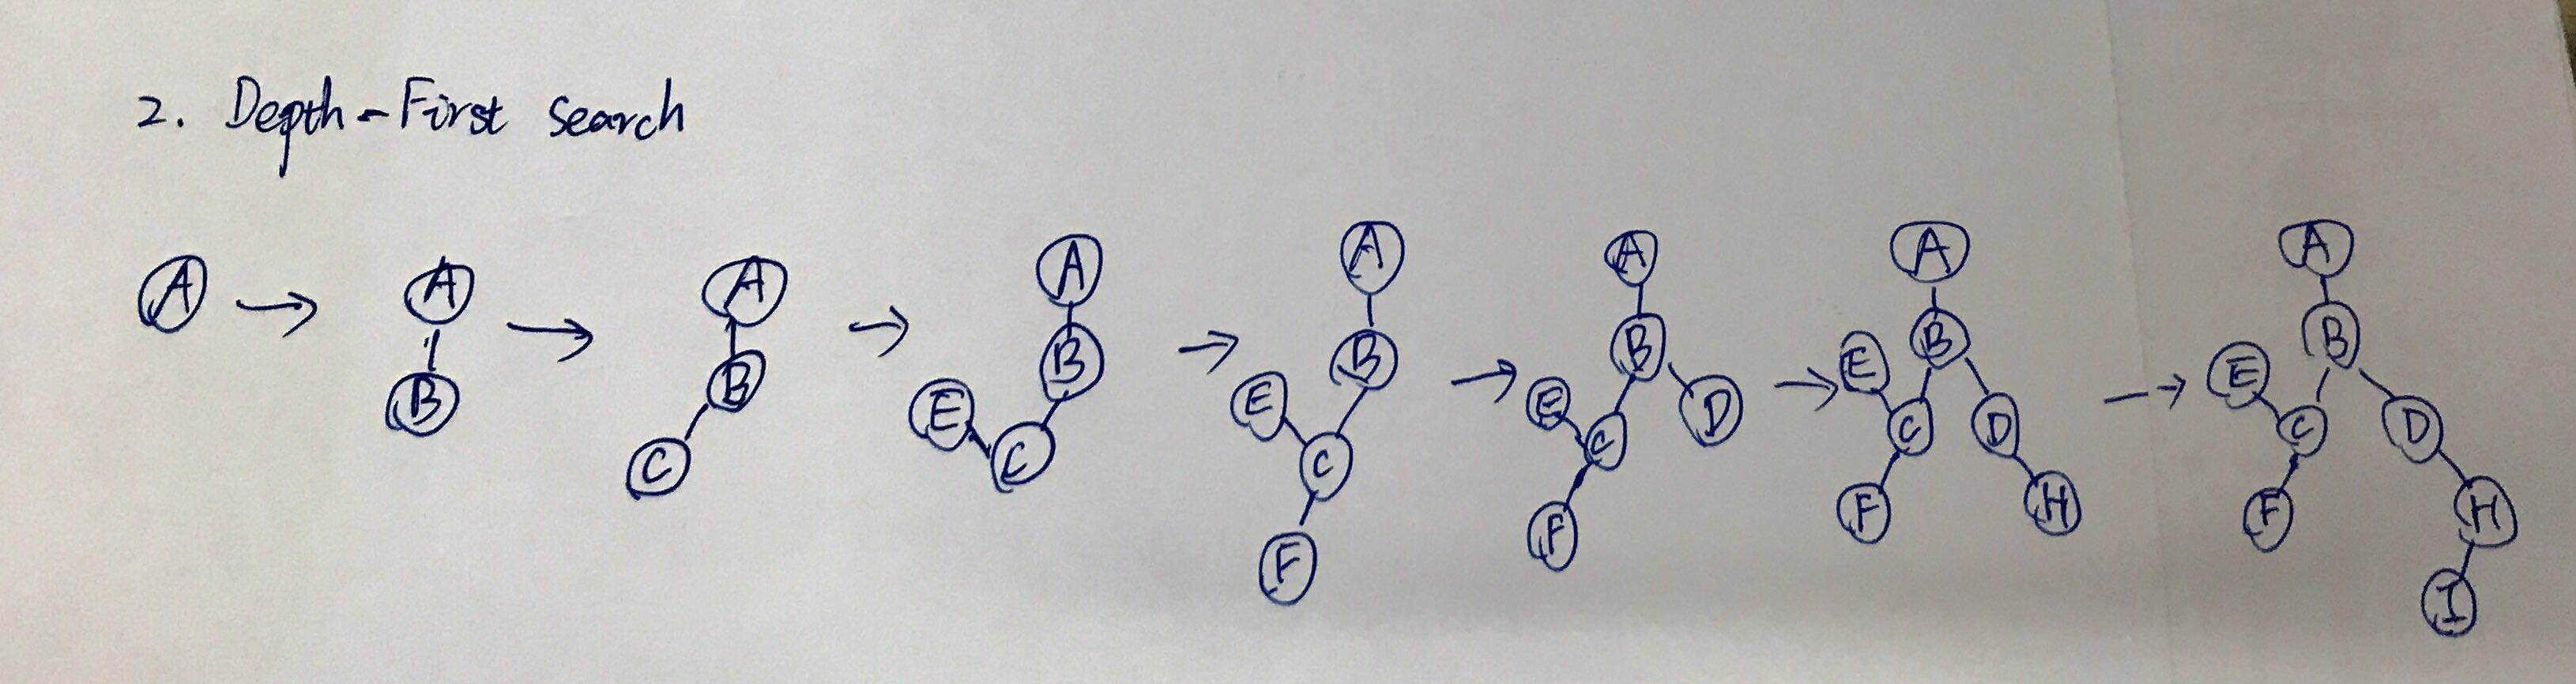 2. Depth-First Search
A → A B → A B C → A B E C → A B E C F → A B E C D F → A B E C D F H → A B E C D F H I